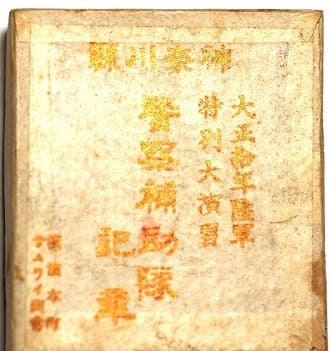 神奈川縣
大正拾年陸軍
特別大演習
警察補助隊
記章
横濱本町
サムライ商會